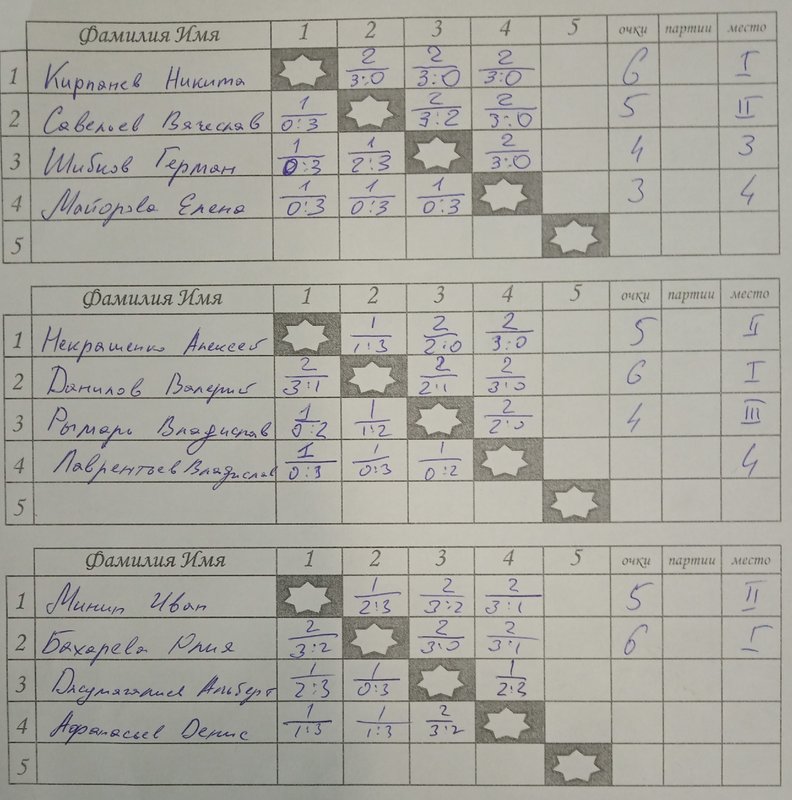 Фамилия Имя 1 2 3 4 5 очки партии место
1 Кирпанев Никита 2 3:0 2 3:0 2 3:0 6 I
2 Савельев Вячеслав 1 0:3 2 3:2 2 3:0 5 II
3 Шибков Герман 1 0:3 1 2:3 2 3:0 4 3
4 Майорова Елена 1 0:3 1 0:3 1 0:3 3 4
5
Фамилия Имя 1 2 3 4 5 очки партии место
1 Некрашенко Алексей 1 1:3 2 2:0 2 3:0 5 II
2 Данилов Валерий 2 3:1 2 2:1 2 3:0 6 I
3 Рымарь Владислав 1 0:2 1 1:2 2 2:0 4 III
4 Лаврентьев Владислав 1 0:3 1 0:3 1 0:2 4
5
Фамилия Имя 1 2 3 4 5 очки партии место
1 Минин Иван 1 2:3 2 3:2 2 3:1 5 II
2 Бахарева Юлия 2 3:2 2 3:0 2 3:1 6 I
3 Альберт 1 2:3 1 0:3 1 2:3
4 Афанасьев Денис 1 1:3 1 1:3 2 3:2
5